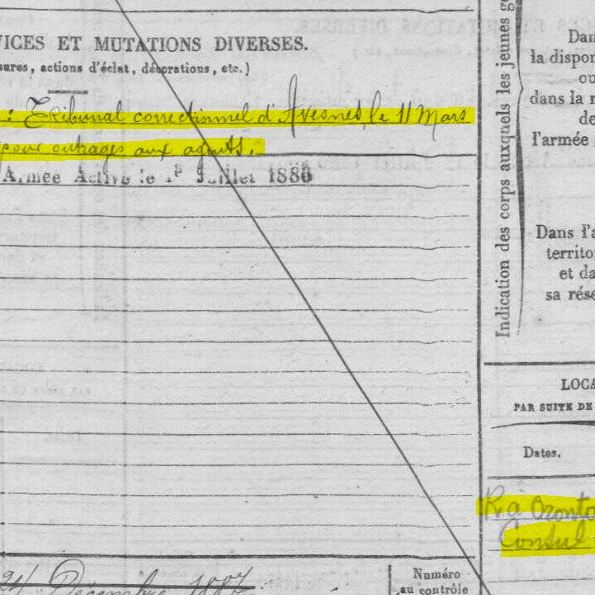 VICES ET MUTATIONS DIVERSES.
sures, actions d'éclat, décorations, etc.)
: Tribunal correctionnel d'Avesnes, le 11 Mars
pour outrages aux agents.
Armée Active le 1er Juillet 1886
24 Décembre 1887
Numéro
au contrôle
Indication des corps auxquels les jeunes g
Dan
la dispon
ou
dans la r
de
l'armée
Dans l'a
territo
et da
sa rése
LOCA
PAR SUITE DE
Dates.
R. a
Consul